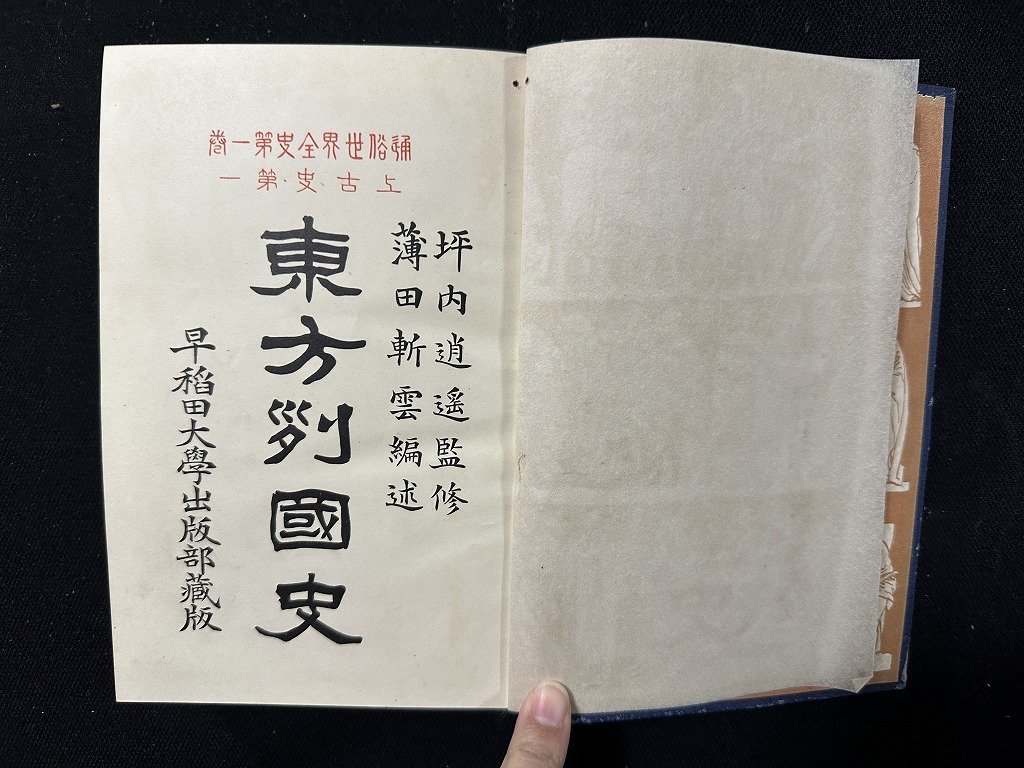 通俗世界全史第一卷
上古史、第一
坪内逍遙監修
薄田斬雲編述
東方列國史
早稻田大學出版部藏版